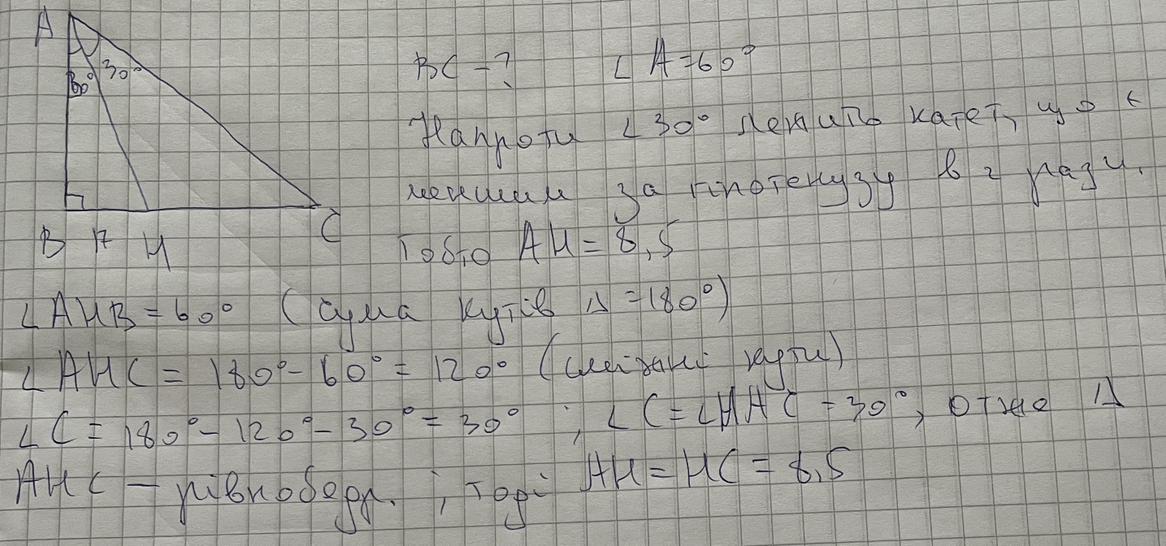 A
30° 30°
BC - ? ∠ A = 60°
Напроти ∠30° лежить катет, що є
меншим за гіпотенузу в 2 рази.
B H C
Тобто AH = 8,5
∠AHB = 60° (сума кутів Δ = 180°)
∠AHC = 180° - 60° = 120° (сміжні кути)
∠C = 180° - 120° - 30° = 30° ; ∠C = ∠HAC = 30°, отже Δ
AHC - рівнобедр. ; тоді AH = HC = 8,5